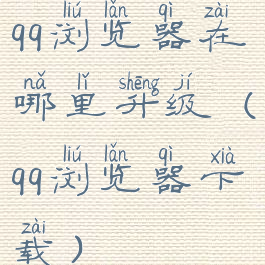 liú lǎn qì zài
qq浏览器在
nǎ lǐ shēng jí
哪里升级（
liú lǎn qì xià
qq浏览器下
zài
载）